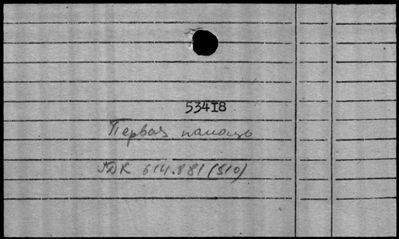 53418
Первая помощь
УДК 614.881(510)